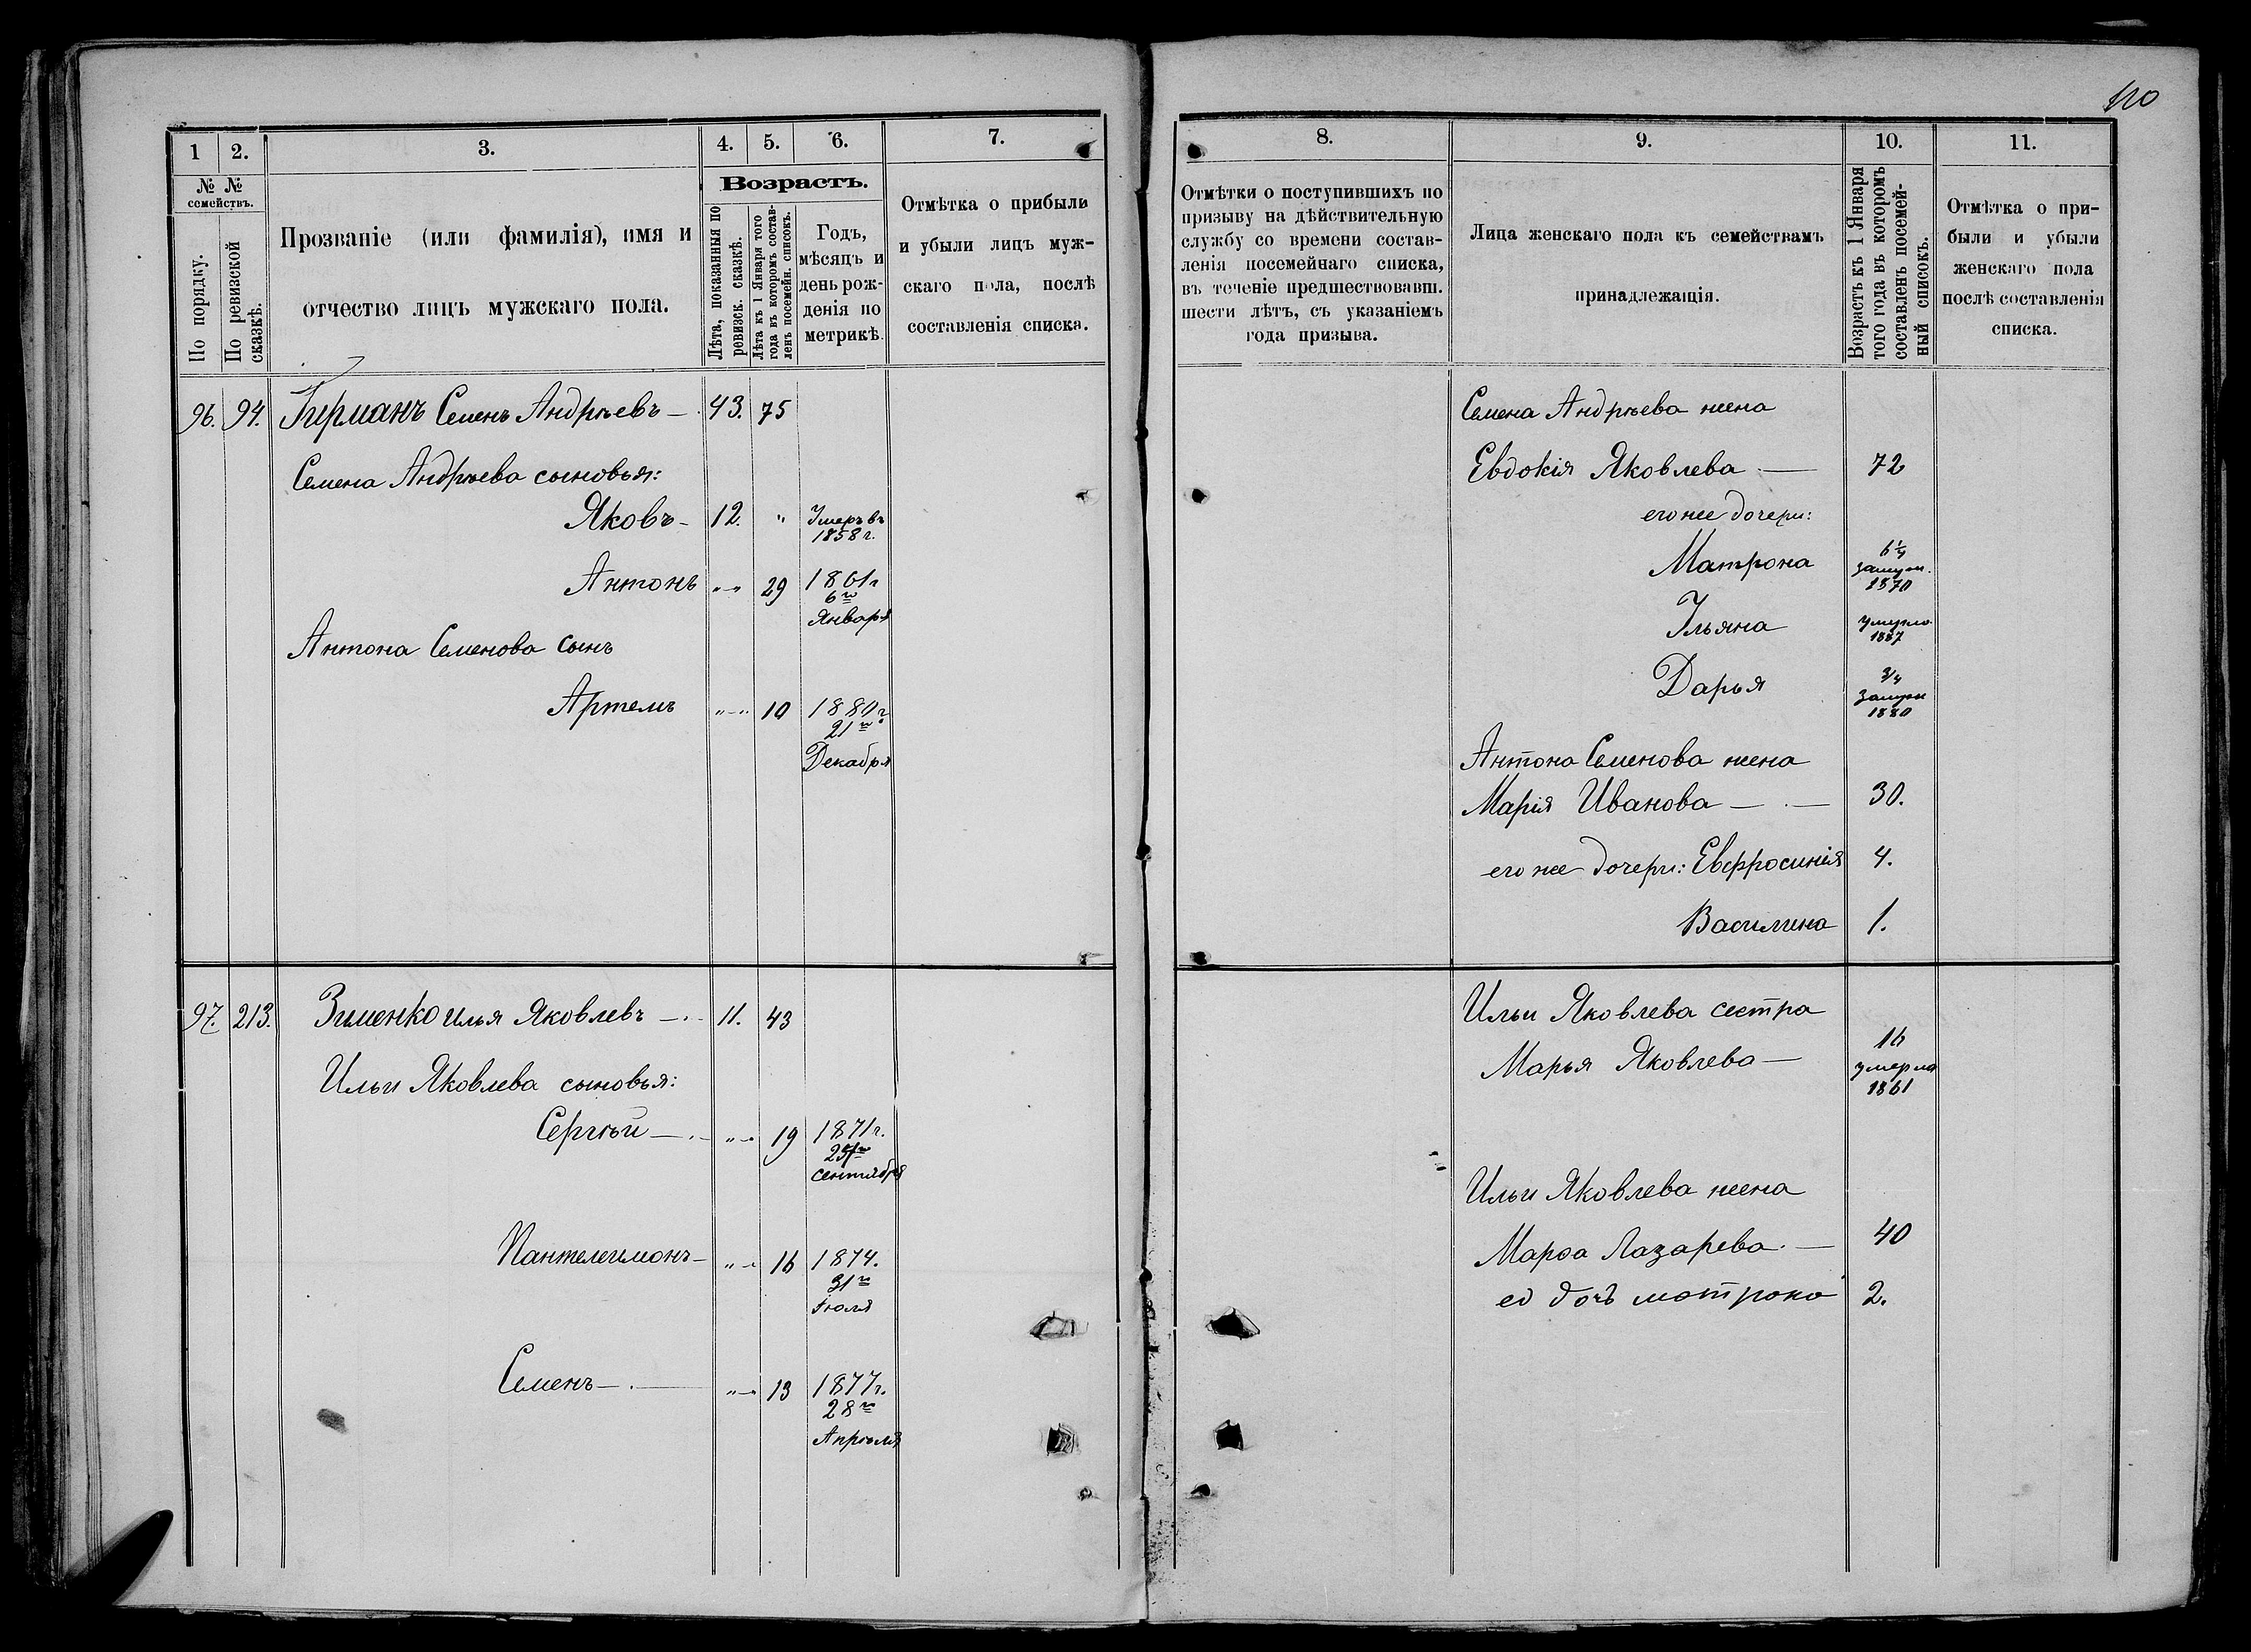 110
1 2. 3. 4. 5. 6. 7.
№ № семействъ.
По порядку.
По ревизской сказкѣ.
Прозваніе (или фамилія), имя и
отчество лицъ мужскаго пола.
Возрастъ.
Лѣта, показанныя по ревизск. сказкѣ.
Лѣта къ 1 Января того года въ которомъ составленъ посемейн. списокъ.
Годъ,
мѣсяцъ и
день рож-
денія по
метрикѣ.
Отмѣтка о прибыли
и убыли лицъ муж-
скаго пола, послѣ
составленія списка.
96. 94. Германъ Семенъ Андреевъ — 43. 75
Семена Андреева сыновья:
Яковъ - 12. " Умеръ въ
1858 г.
Антонъ " " 29 1861 г
6го
Января
Антона Семенова сынъ
Артемъ " " 10 1880 г
21го
Декабря
97. 213. Зименко Илья Яковлевъ — 11. 43
Ильи Яковлева сыновья:
Сергѣй — " " 19 1871 г.
25го
сентября
Пантелеимонъ — " " 16 1874.
31го
Іюля
Семенъ — " " 13 1877 г.
28го
Апрѣля
8. 9. 10. 11.
Отмѣтки о поступившихъ по
призыву на дѣйствительную
службу со времени состав-
ленія посемейнаго списка,
въ теченіе предшествовавш.
шести лѣтъ, съ указаніемъ
года призыва.
Лица женскаго пола къ семействамъ
принадлежащія.
Возрастъ къ 1 Января
того года въ которомъ
составленъ посемей-
ный списокъ.
Отмѣтка о при-
были и убыли
женскаго пола
послѣ составленія
списка.
Семена Андреева жена
Евдокія Яковлева — 72
его же дочери:
Матрона 6 1/4
замуж.
1870
Ульяна умерла
1887
Дарья 3/4
замуж
1880
Антона Семенова жена
Марія Иванова — 30.
его же дочери: Евфросинія 4.
Василина 1.
Ильи Яковлева сестра
Марья Яковлева — 16
умерла
1861
Ильи Яковлева жена
Марѳа Лазарева — 40
ео дочъ мотроно 2.